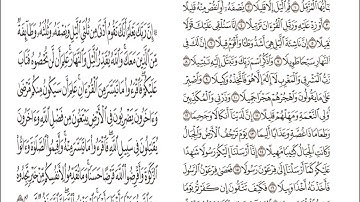 يَٰٓأَيُّهَا ٱلْمُزَّمِّلُ ١ قُمِ ٱلَّيْلَ إِلَّا قَلِيلًا ٢ نِّصْفَهُۥٓ أَوِ ٱنقُصْ مِنْهُ قَلِيلًا ٣
أَوْ زِدْ عَلَيْهِ وَرَتِّلِ ٱلْقُرْءَانَ تَرْتِيلًا ٤ إِنَّا سَنُلْقِى عَلَيْكَ قَوْلًا
ثَقِيلًا ٥ إِنَّ نَاشِئَةَ ٱلَّيْلِ هِىَ أَشَدُّ وَطْـًٔا وَأَقْوَمُ قِيلًا ٦ إِنَّ لَكَ فِى
ٱلنَّهَارِ سَبْحًا طَوِيلًا ٧ وَٱذْكُرِ ٱسْمَ رَبِّكَ وَتَبَتَّلْ إِلَيْهِ تَبْتِيلًا ٨
رَّبُّ ٱلْمَشْرِقِ وَٱلْمَغْرِبِ لَآ إِلَٰهَ إِلَّا هُوَ فَٱتَّخِذْهُ وَكِيلًا ٩
وَٱصْبِرْ عَلَىٰ مَا يَقُولُونَ وَٱهْجُرْهُمْ هَجْرًا جَمِيلًا ١٠ وَذَرْنِى وَٱلْمُكَذِّبِينَ
أُو۟لِى ٱلنَّعْمَةِ وَمَهِّلْهُمْ قَلِيلًا ١١ إِنَّ لَدَيْنَآ أَنكَالًا وَجَحِيمًا ١٢
وَطَعَامًا ذَا غُصَّةٍ وَعَذَابًا أَلِيمًا ١٣ يَوْمَ تَرْجُفُ ٱلْأَرْضُ وَٱلْجِبَالُ
وَكَانَتِ ٱلْجِبَالُ كَثِيبًا مَّهِيلًا ١٤ إِنَّآ أَرْسَلْنَآ إِلَيْكُمْ رَسُولًا شَٰهِدًا
عَلَيْكُمْ كَمَآ أَرْسَلْنَآ إِلَىٰ فِرْعَوْنَ رَسُولًا ١٥ فَعَصَىٰ فِرْعَوْنُ ٱلرَّسُولَ
فَأَخَذْنَٰهُ أَخْذًا وَبِيلًا ١٦ فَكَيْفَ تَتَّقُونَ إِن كَفَرْتُمْ يَوْمًا
۞ إِنَّ رَبَّكَ يَعْلَمُ أَنَّكَ تَقُومُ أَدْنَىٰ مِن ثُلُثَىِ ٱلَّيْلِ وَنِصْفَهُۥ وَثُلُثَهُۥ وَطَآئِفَةٌ
مِّنَ ٱلَّذِينَ مَعَكَ وَٱللَّهُ يُقَدِّرُ ٱلَّيْلَ وَٱلنَّهَارَ عَلِمَ أَن لَّن تُحْصُوهُ فَتَابَ
عَلَيْكُمْ فَٱقْرَءُوا۟ مَا تَيَسَّرَ مِنَ ٱلْقُرْءَانِ عَلِمَ أَن سَيَكُونُ مِنكُم مَّرْضَىٰ
وَءَاخَرُونَ يَضْرِبُونَ فِى ٱلْأَرْضِ يَبْتَغُونَ مِن فَضْلِ ٱللَّهِ وَءَاخَرُونَ
يُقَٰتِلُونَ فِى سَبِيلِ ٱللَّهِ فَٱقْرَءُوا۟ مَا تَيَسَّرَ مِنْهُ وَأَقِيمُوا۟ ٱلصَّلَوٰةَ وَءَاتُوا۟
ٱلزَّكَوٰةَ وَأَقْرِضُوا۟ ٱللَّهَ قَرْضًا حَسَنًا وَمَا تُقَدِّمُوا۟ لِأَنفُسِكُم مِّنْ خَيْرٍ تَجِدُوهُ